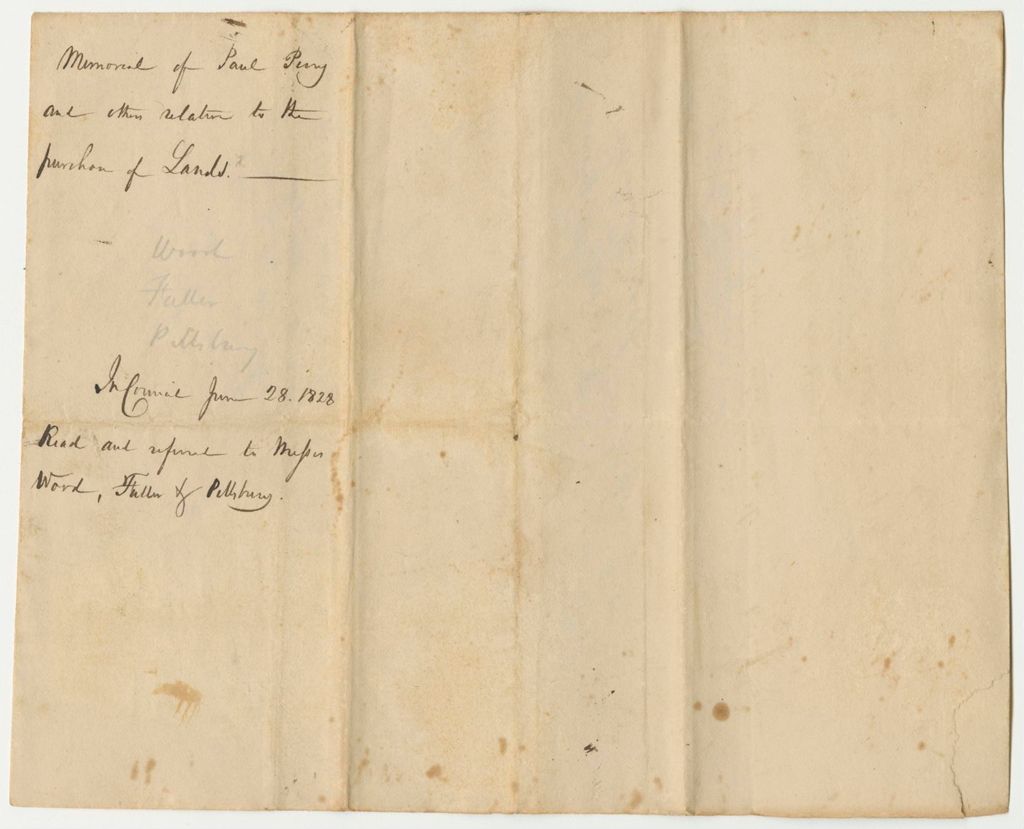 Memorial of Paul Perry
and others relative to the
purchase of Lands.
Wood
Fuller
Pillsbury
In Council June 28. 1828
Read and referred to Messrs
Wood, Fuller & Pillsbury.